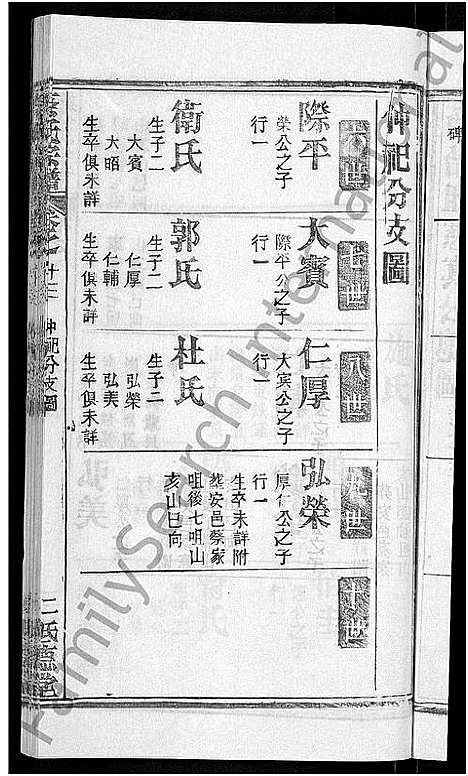 仲祀分支圖
六世
際平
榮公之子
行一
衛氏
生子二
大賓
大昭
生卒俱未詳
七世
大賓
際平公之子
行一
郭氏
生子二
仁厚
仁輔
生卒俱未詳
八世
仁厚
大宾公之子
行一
杜氏
生子二
弘榮
弘美
生卒俱未詳
九世
弘榮
厚仁公之子
行一
生卒未詳附
葬安邑蔡家
咀後七咀山
亥山巳向
十世
仲祀分支圖
碑
FamilySearch International